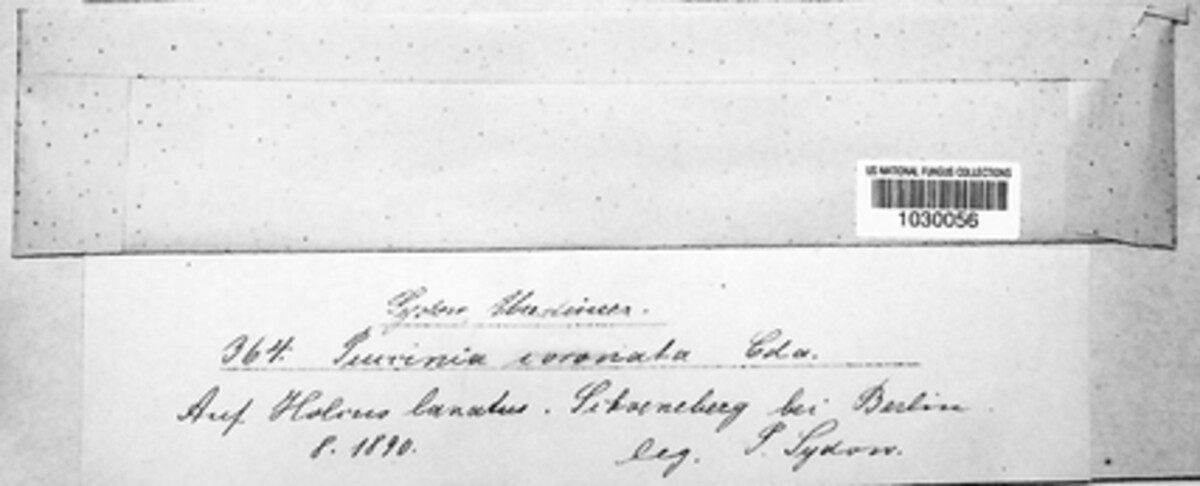 US NATIONAL FUNGUS COLLECTIONS
1030056
Sydow, Uredineen.
364. Puccinia coronata Cda.
Auf Holcus lanatus. Schoeneberg bei Berlin.
8. 1890. leg. P. Sydow.